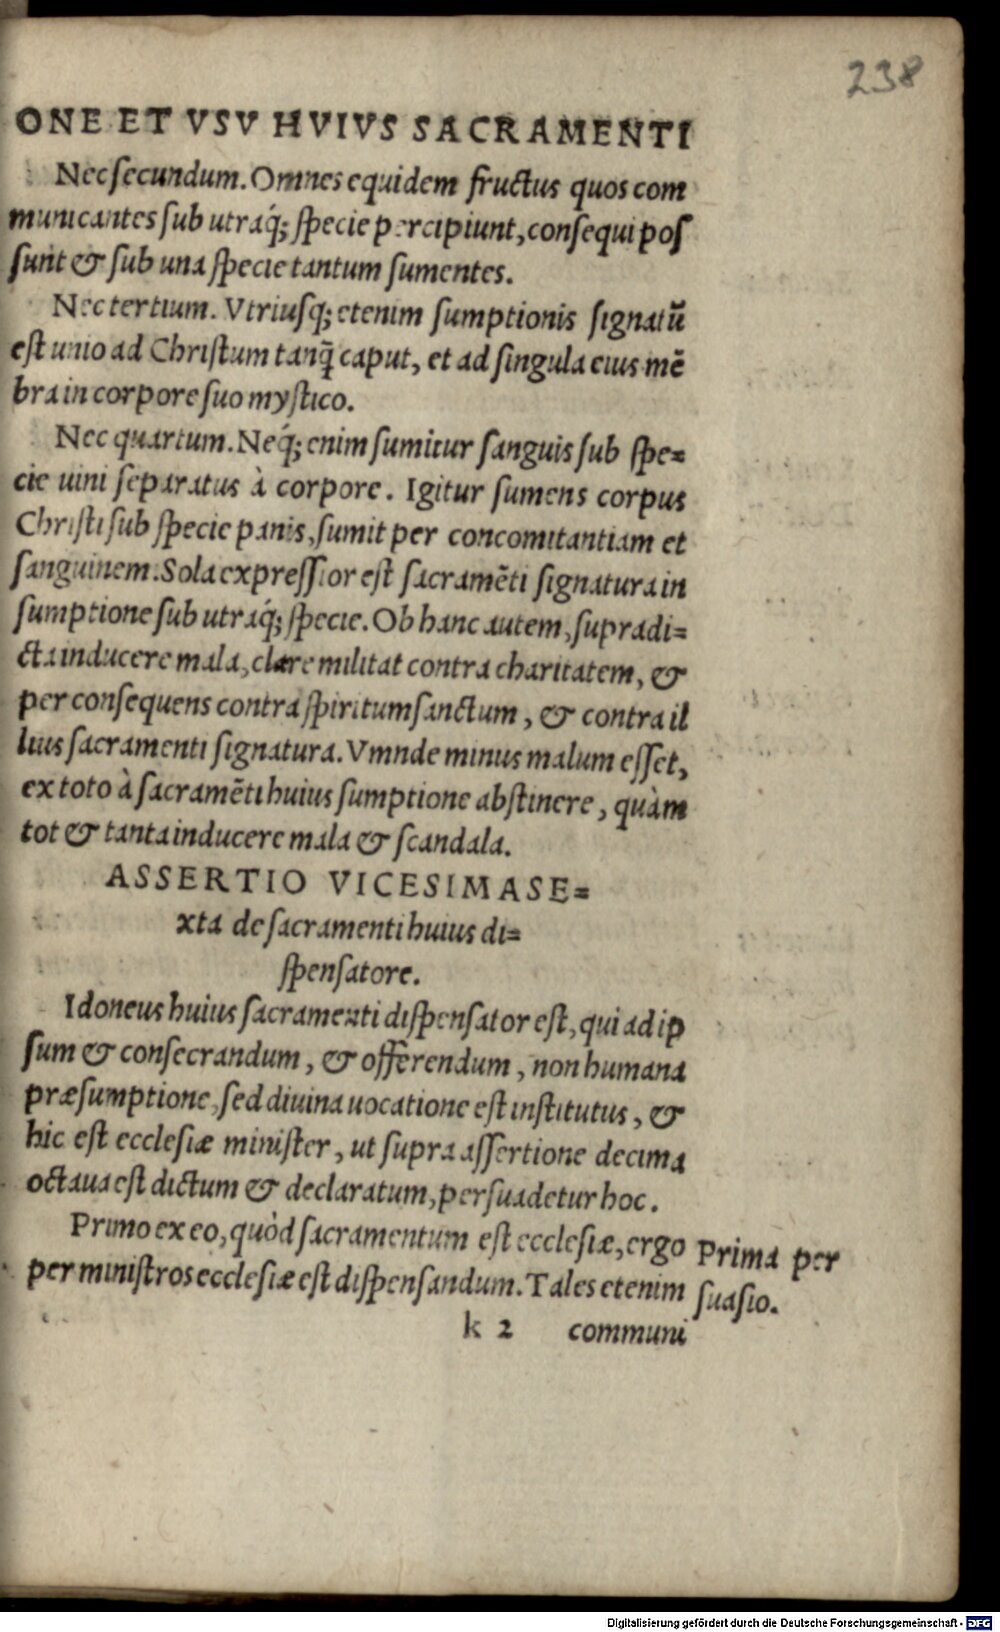 238
ONE ET VSV HVIVS SACRAMENTI
Nec secundum. Omnes equidem fructus quos com
municantes sub utraq́; specie percipiunt, consequi pos
sunt & sub una specie tantum sumentes.
Nec tertium. Vtriusq; etenim sumptionis signatū
est unio ad Christum tanq̄ caput, et ad singula eius mē
bra in corpore suo mystico.
Nec quartum. Neq́; enim sumitur sanguis sub spe=
cie uini separatus à corpore. Igitur sumens corpus
Christi sub specie panis, sumit per concomitantiam et
sanguinem. Sola expressior est sacramēti signatura in
sumptione sub utraq́; specie. Ob hanc autem, supradi=
cta inducere mala, clare militat contra charitatem, &
per consequens contra spiritum sanctum, & contra il
lius sacramenti signatura. Vmnde minus malum esset,
ex toto à sacramēti huius sumptione abstinere, quàm
tot & tanta inducere mala & scandala.
ASSERTIO VICESIMASE=
xta de sacramenti huius di=
spensatore.
Idoneus huius sacramenti dispensator est, qui ad ip
sum & consecrandum, & offerendum, non humana
præsumptione, sed diuina uocatione est institutus, &
hic est ecclesiæ minister, ut supra assertione decima
octaua est dictum & declaratum, persuadetur hoc.
Primo ex eo, quòd sacramentum est ecclesiæ, ergo
per ministros ecclesiæ est dispensandum. Tales etenim
Prima per
suasio.
k 2 communi
Digitalisierung gefördert durch die Deutsche Forschungsgemeinschaft - DFG